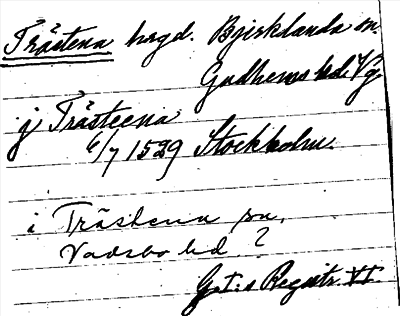 Trästena hrgd. Bjerklanda sn.
Gudhems hd. Vg
j Trästeena
6/7 1529 Stockholm
i Trästena sn,
Vadsbo hd ?
G. I:s Registr. VI